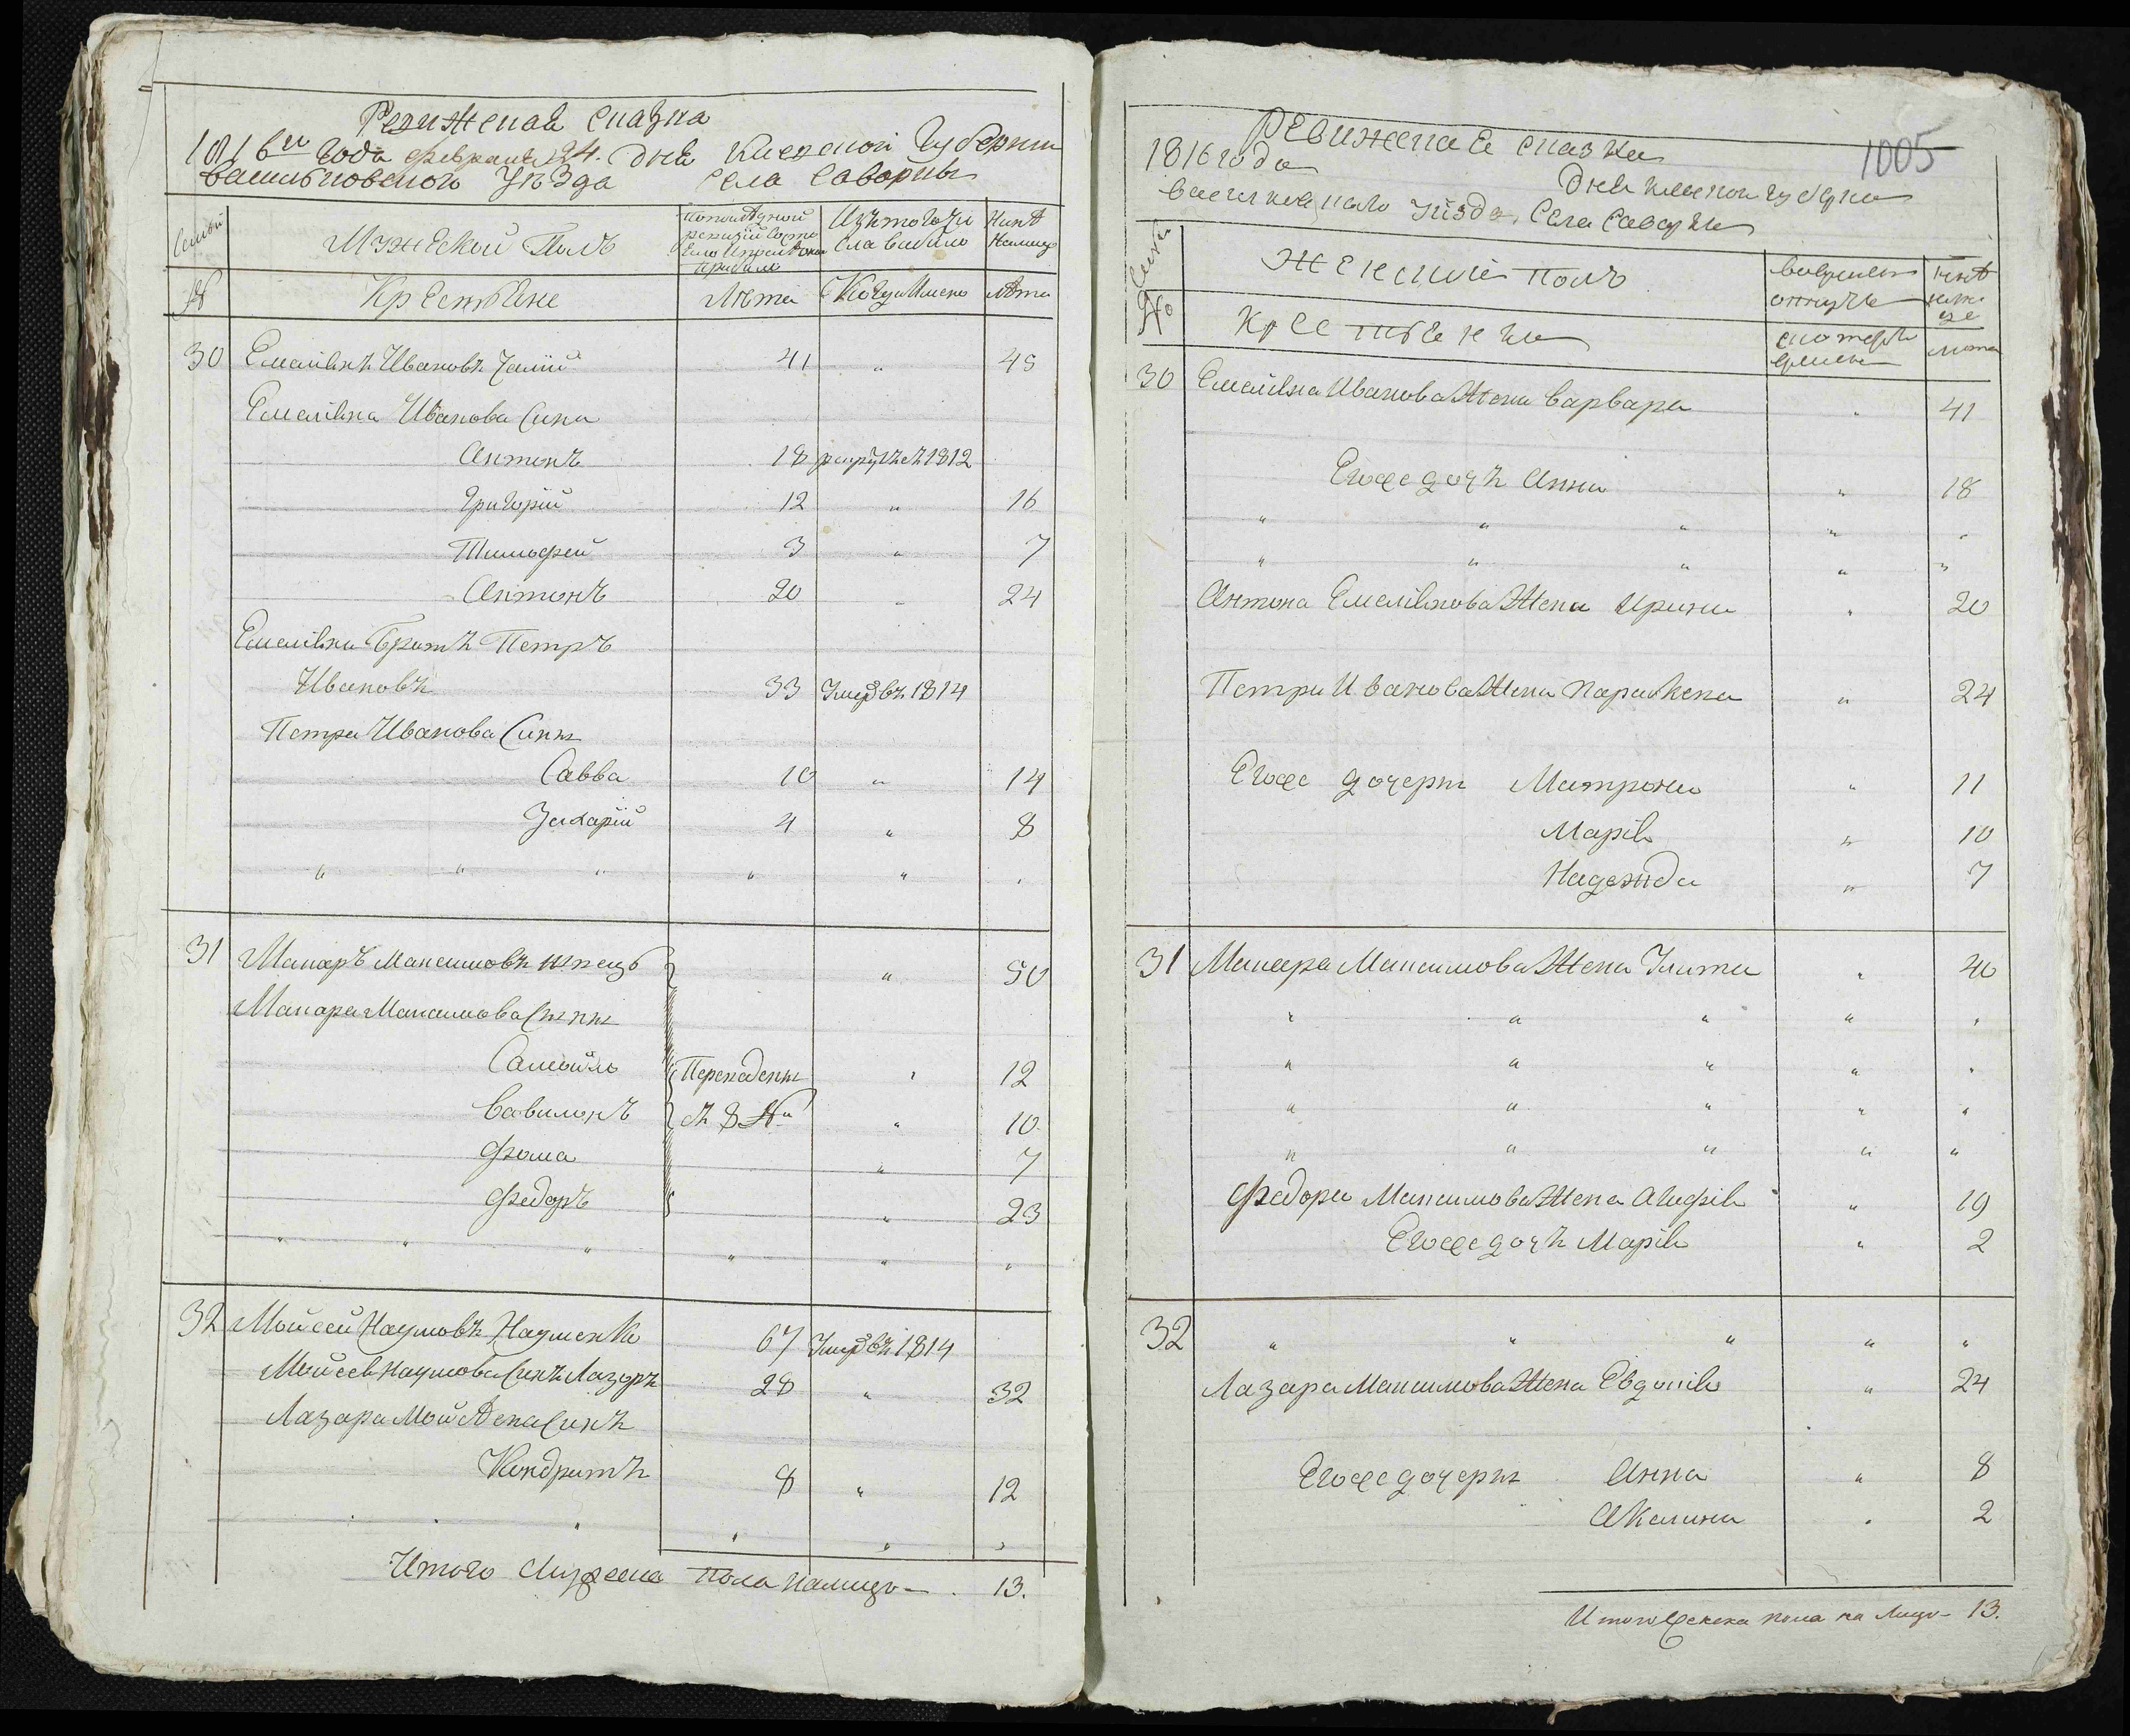 Ревижская сказка
1816го Года Февраля 24. дня Киевской Губернии
Васильковского Уѣзда Села Саворки
Семьи
Мужеской Полъ
Изъ того числа выбило
Нинѣ Налицо
№ Крестьяне Лѣта Когда Имено лѣта
30 Емелїянъ Ивановъ Чалїй 41 „ 45
Емелїяна Иванова Сини
Антонъ 18 рекрутъ съ 1812
Григорїй 12 „ 16
Тимофей 3 „ 7
Антонъ 20 „ 24
Емелїяна Братъ Петръ
Ивановъ 33 Умеръ въ 1814
Петра Иванова Сины
Савва 10 „ 14
Захарїй 4 „ 8
„ „ „ „ „ „
31 Макаръ Максимовъ Швецъ „ 50
Макара Максимова Сыны
Самойло Переведены „ 12
Вавилонъ съ 8 № „ 10
Фома „ 7
Федоръ „ 23
„ „ „ „ „ „
32 Мойсей Наумовъ Науменко 67 Умеръ въ 1814
Мойсея Наумова Синъ Лазоръ 28 „ 32
Лазара Мойсѣева Синъ
Кондратъ 8 „ 12
„ „ „ „ „ „
Итого Мужеска Пола налицо — 13.
1005
Ревижская сказка
1816 года
Дня Киевской губерни
Васильковскаго Уѣзда, Села Саворки
Женский полъ
Во временной отлучке
Нинѣ налице
№ Крестьянки
с которого времени
лѣта
30 Емелїяна Иванова Жена Варвара „ 41
Егоже дочъ Анна „ 18
„ „ „ „ „
„ „ „ „ „
Антона Емелїянова Жена Ирина „ 20
Петра Иванова Жена Параскева „ 24
Егоже дочеры Матрона „ 11
Марїя „ 10
Надежда „ 7
31 Макара Максимова Жена Улита „ 40
„ „ „ „ „
„ „ „ „ „
„ „ „ „ „
„ „ „ „ „
Федора Максимова Жена Агафїя „ 19
Егоже дочъ Марїя „ 2
32 „ „ „ „ „
Лазара Максимова Жена Евдокїя „ 24
Егоже дочеры Анна „ 8
Акелина „ 2
Итого Женска пола на Лицо — 13.